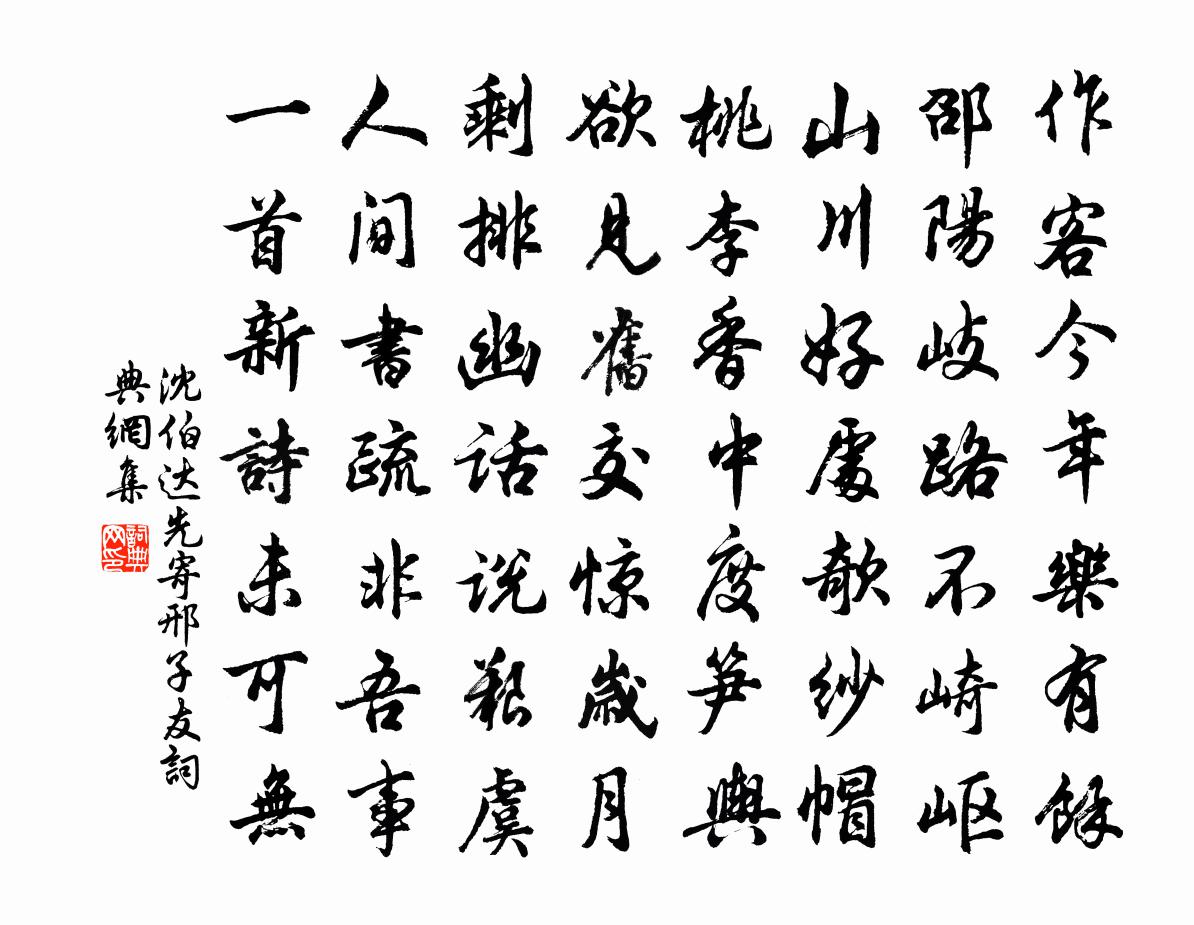 作客今年樂有餘
邵陽歧路不崎岖
山川好處欹紗帽
桃李香中度笋輿
欲見舊交惊歲月
剩排幽话说艱虞
人間書疏非吾事
一首新詩未可無
沈伯达先寄邢子友詞
典網集
詞典
网印